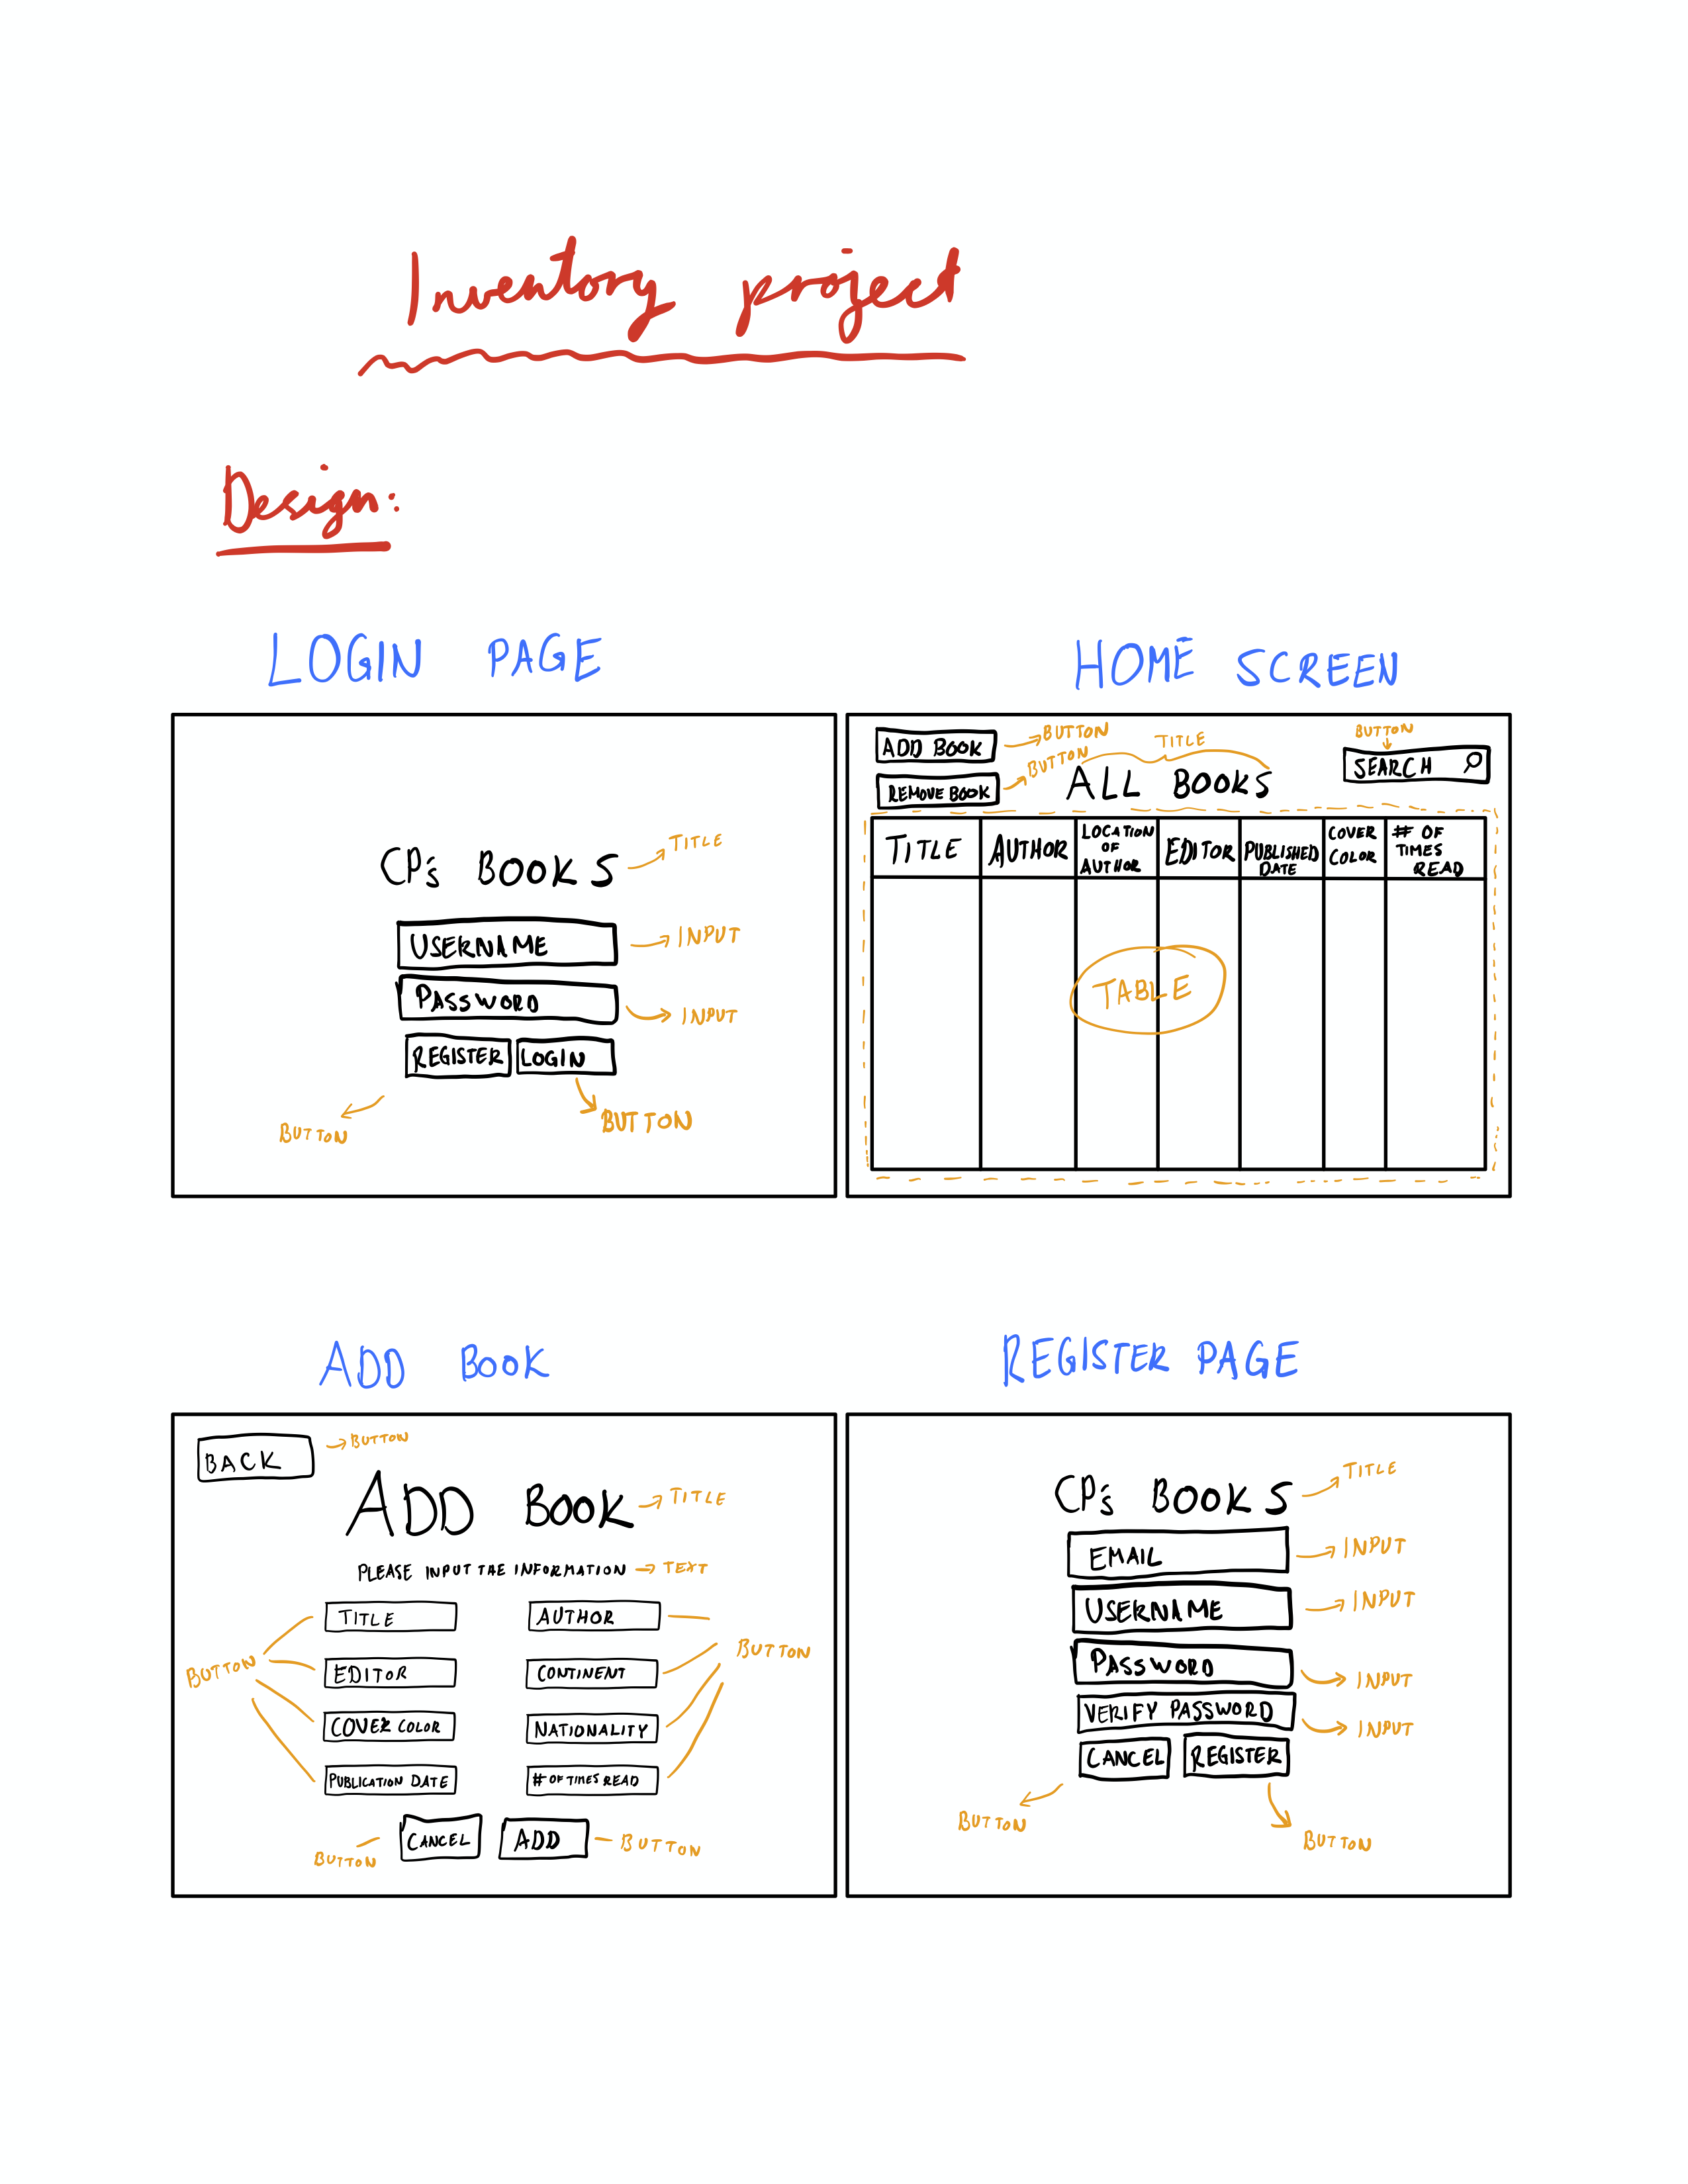 Inventory project
Design:
LOGIN PAGE
CP's BOOKS
TITLE
USERNAME
INPUT
PASSWORD
INPUT
REGISTER
LOGIN
BUTTON
BUTTON
HOME SCREEN
ADD BOOK
BUTTON
REMOVE BOOK
BUTTON
TITLE
ALL BOOKS
BUTTON
SEARCH
TITLE
AUTHOR
LOCATION
OF
AUTHOR
EDITOR
PUBLISHED
DATE
COVER
COLOR
# OF
TIMES
READ
TABLE
ADD BOOK
BACK
BUTTON
ADD BOOK
TITLE
PLEASE INPUT THE INFORMATION
TEXT
TITLE
AUTHOR
BUTTON
BUTTON
EDITOR
CONTINENT
COVER COLOR
NATIONALITY
PUBLICATION DATE
# OF TIMES READ
BUTTON
CANCEL
ADD
BUTTON
REGISTER PAGE
CP's BOOKS
TITLE
EMAIL
INPUT
USERNAME
INPUT
PASSWORD
INPUT
VERIFY PASSWORD
INPUT
CANCEL
REGISTER
BUTTON
BUTTON